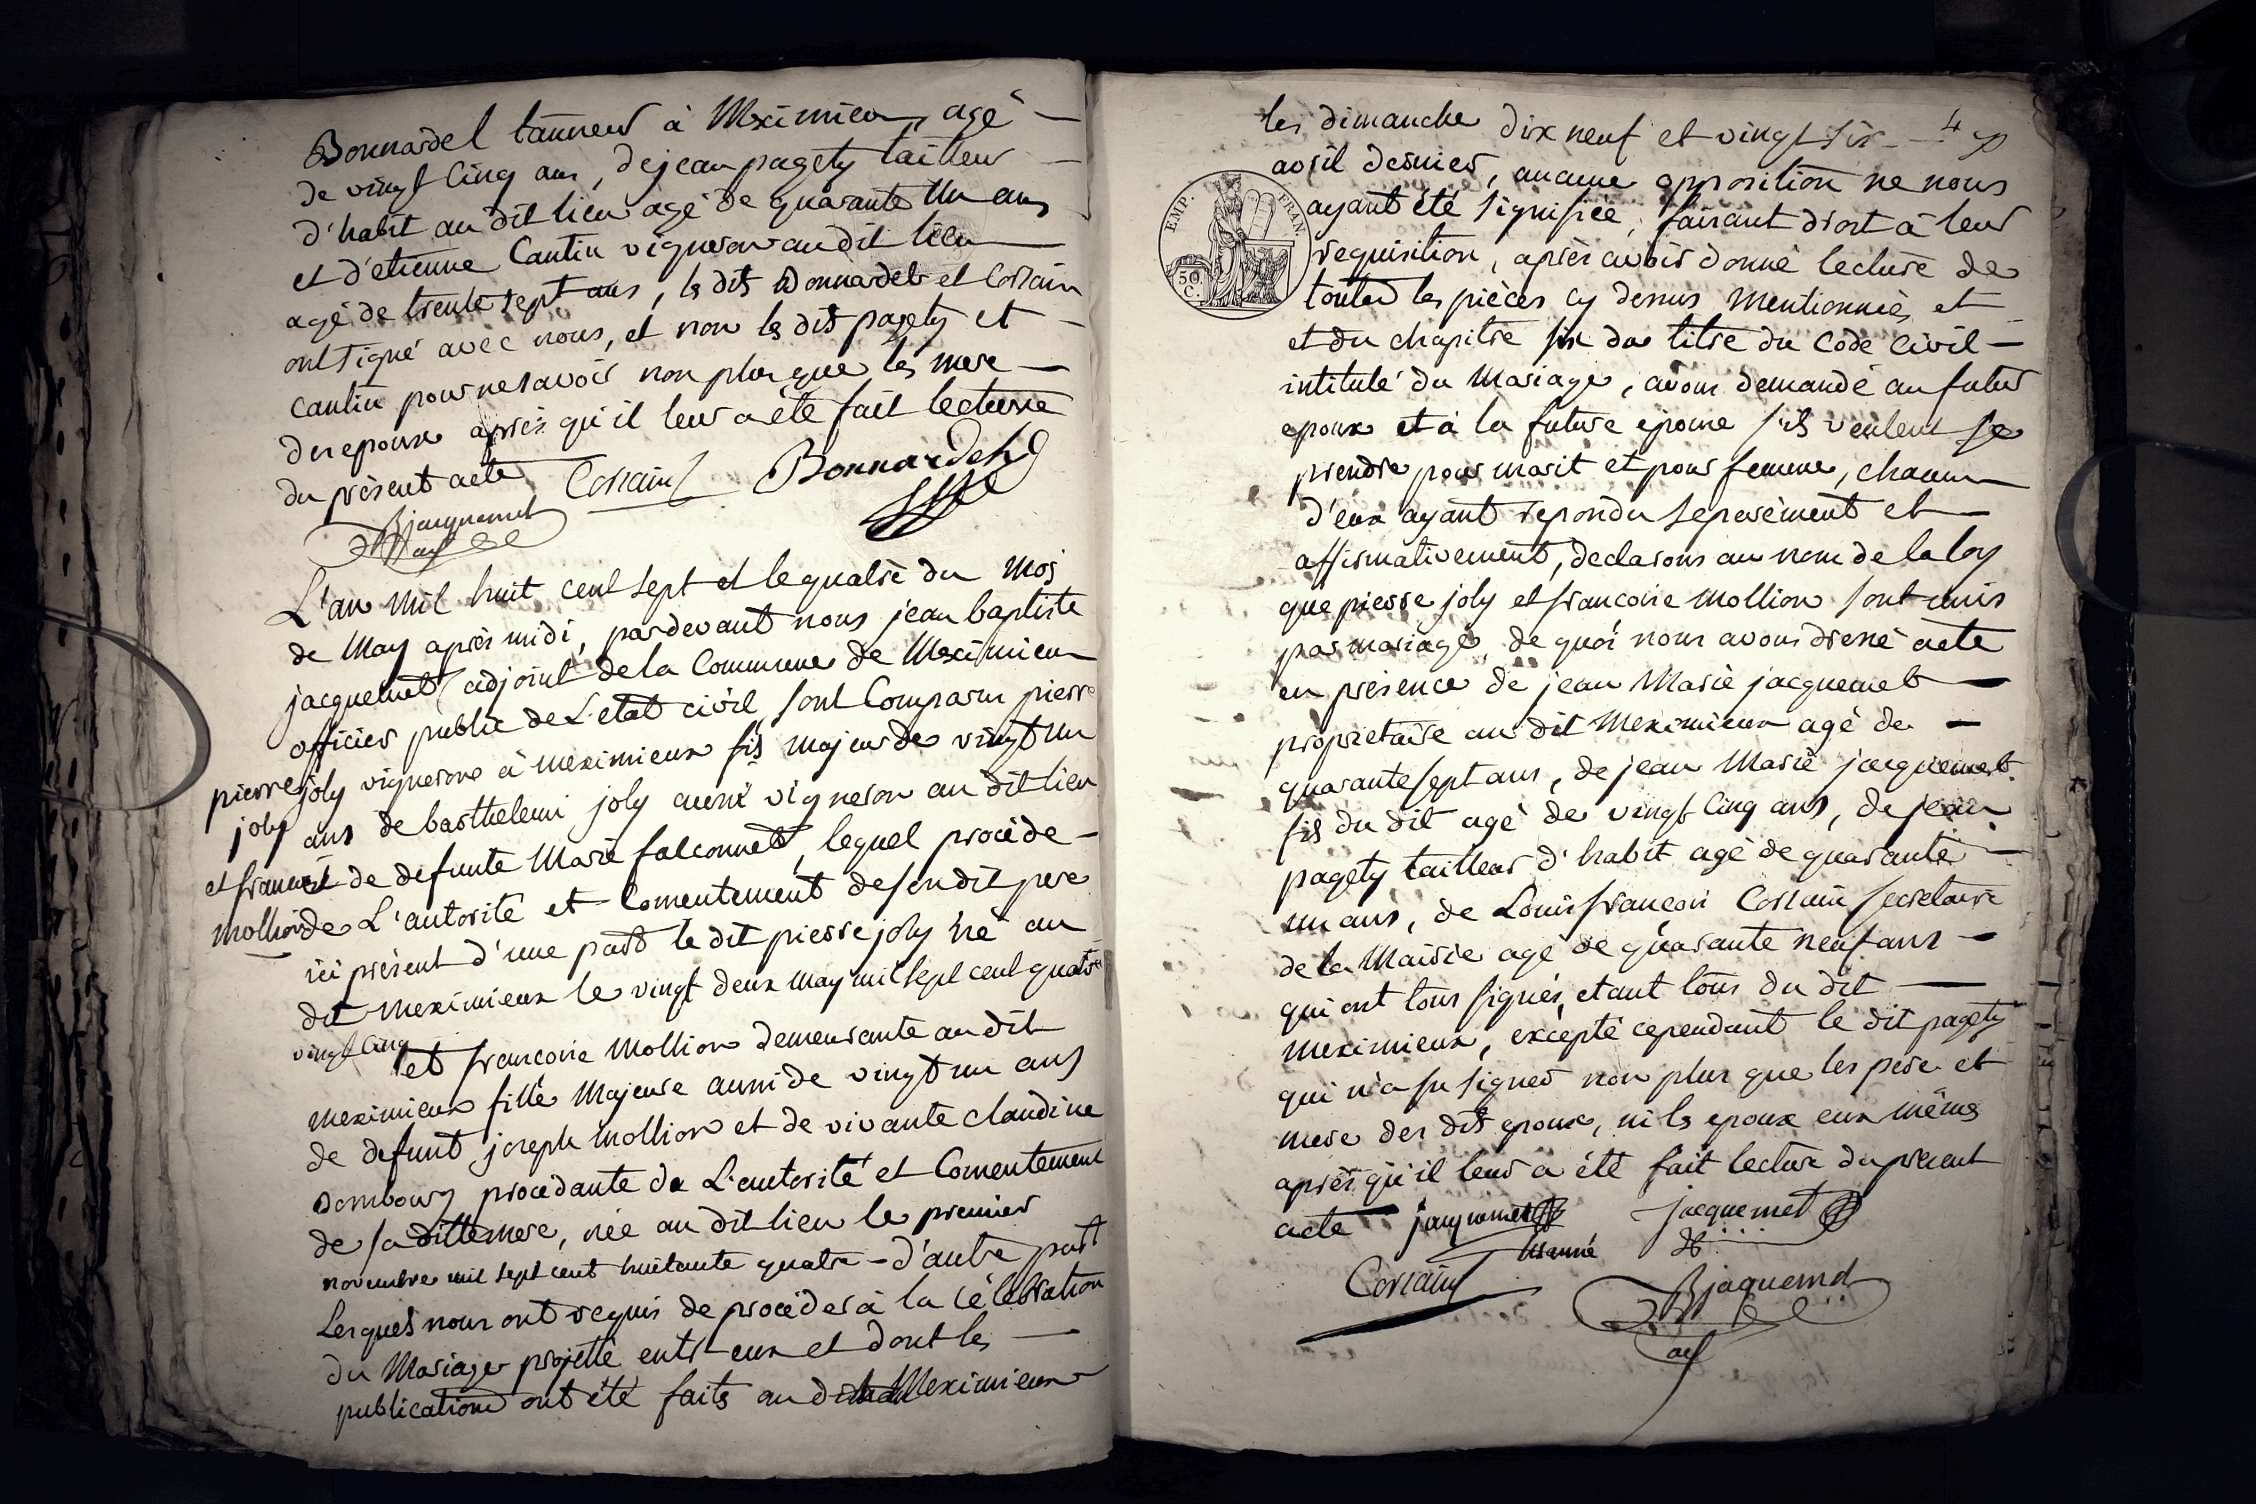 Bonnardel tanneur à Meximieux, agé
de vingt cinq ans, de jean pagety tailleur
d'habit au dit lieu agé de quarante un ans
et d'etienne Cantin vigneron au dit lieu
agé de trente sept ans, les dits Bonnardel et Corsain
ont signé avec nous, et non les dits pagety et
cantin pour ne savoir non plus que les mere
des epoux après qu'il leur a été fait lecture
du présent acte Corsain Bonnardel
Bjacquemet
adj
L'an mil huit cent sept et le quatre du mois
de May après midi, pardevant nous jean baptiste
jacquemet adjoint de la Commune de Meximieux
officier public de L'etat civil sont Comparus pierre
joly vigneron à meximieux fils majeur de vingt un
ans de barthelemi joly aussi vigneron au dit lieu
et de defunte Marie falconnet, lequel procède
de L'autorité et Consentement de son dit pere
ici présent d'une part le dit pierre joly né au
dit meximieux le vingt deux may mil sept cent quatre
vingt cinq
et francoise Mollion demeurante au dit
meximieux fille Majeure aussi de vingt un ans
de defunt joseph Mollion et de vivante claudine
Dombourg procédante de L'autorité et Consentement
de sa ditte mere, née au dit lieu le premier
novembre mil sept cent huitante quatre - d'autre part
Lesquels nous ont requis de procéder à la célébration
du Mariage projetté entr eux et dont les
publications ont été faits au dit Meximieux
pierre
joly
et francoise
mollion
4
les dimanche dix neuf et vingt six
avril dernier, aucune opposition ne nous
ayant été signifiée, faisant droit à leur
requisition, après avoir donné lecture de
toutes les pièces cy dessus mentionnées et
et du chapitre six du titre du Code civil
intitulé du Mariage, avons demandé au futur
epoux et à la future epouse s'ils veulent se
prendre pour marit et pour femme, chacun
d'eux ayant repondu séparément et
affirmativement, declarons au nom de la loy
que pierre joly et francoise Mollion sont unis
par mariage, de quoi nous avons dressé acte
en présence de jean Marie jacquemet
proprietaire au dit Meximieux agé de
quarante sept ans, de jean Marie jacquemet
fils du dit agé de vingt cinq ans, de jean
pagety tailleur d'habit agé de quarante
un ans, de Louis françois Corsain secretaire
de la Mairie agé de quarante neuf ans
qui ont tous signés, etant tous du dit
meximieux, excepté cependant le dit pagety
qui n'a su signer non plus que les pere et
mere des dits epoux, ni les epoux eux mêmes
après qu'il leur a été fait lecture du présent
acte jacquemet jacquemet
Corsain
Bjaquemet
adj
EMP. FRAN.
50
C.